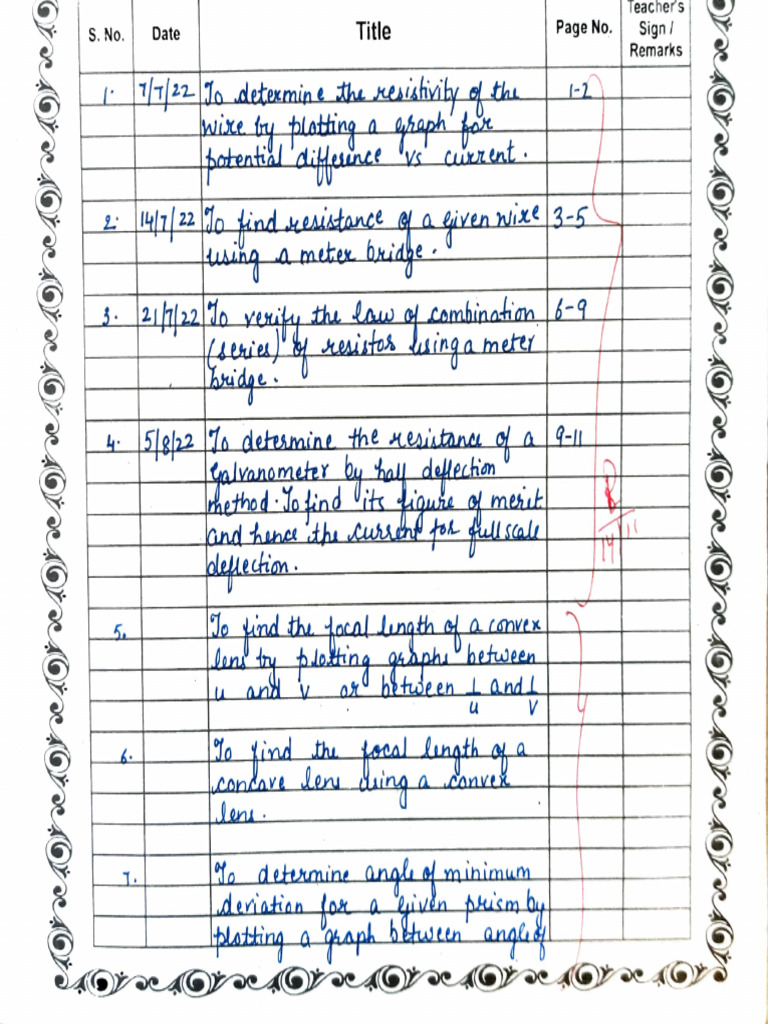 S. No. Date Title Page No. Teacher's Sign / Remarks
1. 7/7/22 To determine the resistivity of the 1-2
wire by plotting a graph for
potential difference vs current.
2. 14/7/22 To find resistance of a given wire 3-5
using a meter bridge.
3. 21/7/22 To verify the law of combination 6-9
(series) of resistos using a meter
bridge.
4. 5/8/22 To determine the resistance of a 9-11
galvanometer by half deflection
method. To find its figure of merit
and hence the current for full scale
deflection.
14/11
5. To find the focal length of a convex
lens by plotting graphs between
u and v or between 1/u and 1/v
6. To find the focal length of a
concave lens using a convex
lens.
7. To determine angle of minimum
deviation for a given prism by
plotting a graph between angle of